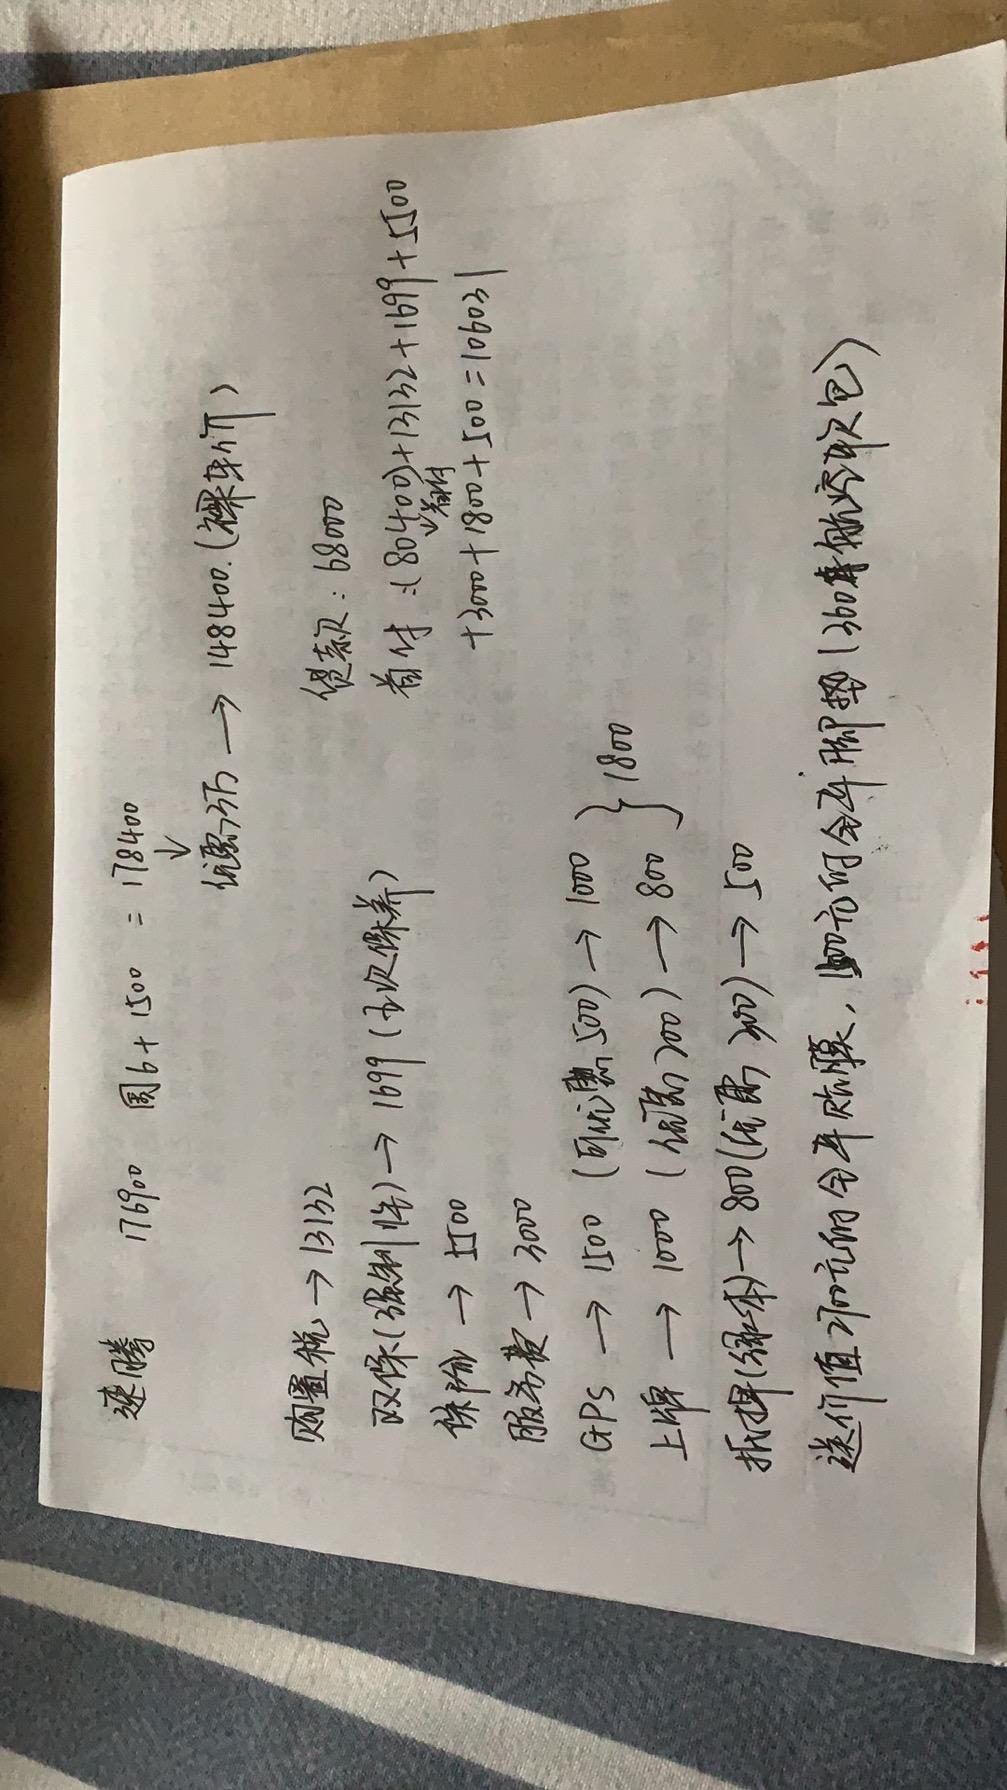 速腾 176900 国6+1500=178400
↓
优惠3万→148400.(裸车价)
购置税→13132
双保(强制性)→1699(五次保养)
保险→5500
服务费→3000
GPS→1500(可优惠500)→1000
上牌→1000(优惠200)→800
}1800
抵押(绿本)→800(优惠300)→500
贷款:68000
首付:(80400)+13132+1699+5500
↘首付
+3000+1800+500=106031
送价值2700元的全车贴膜,1500元的全车脚垫(360航空软包)